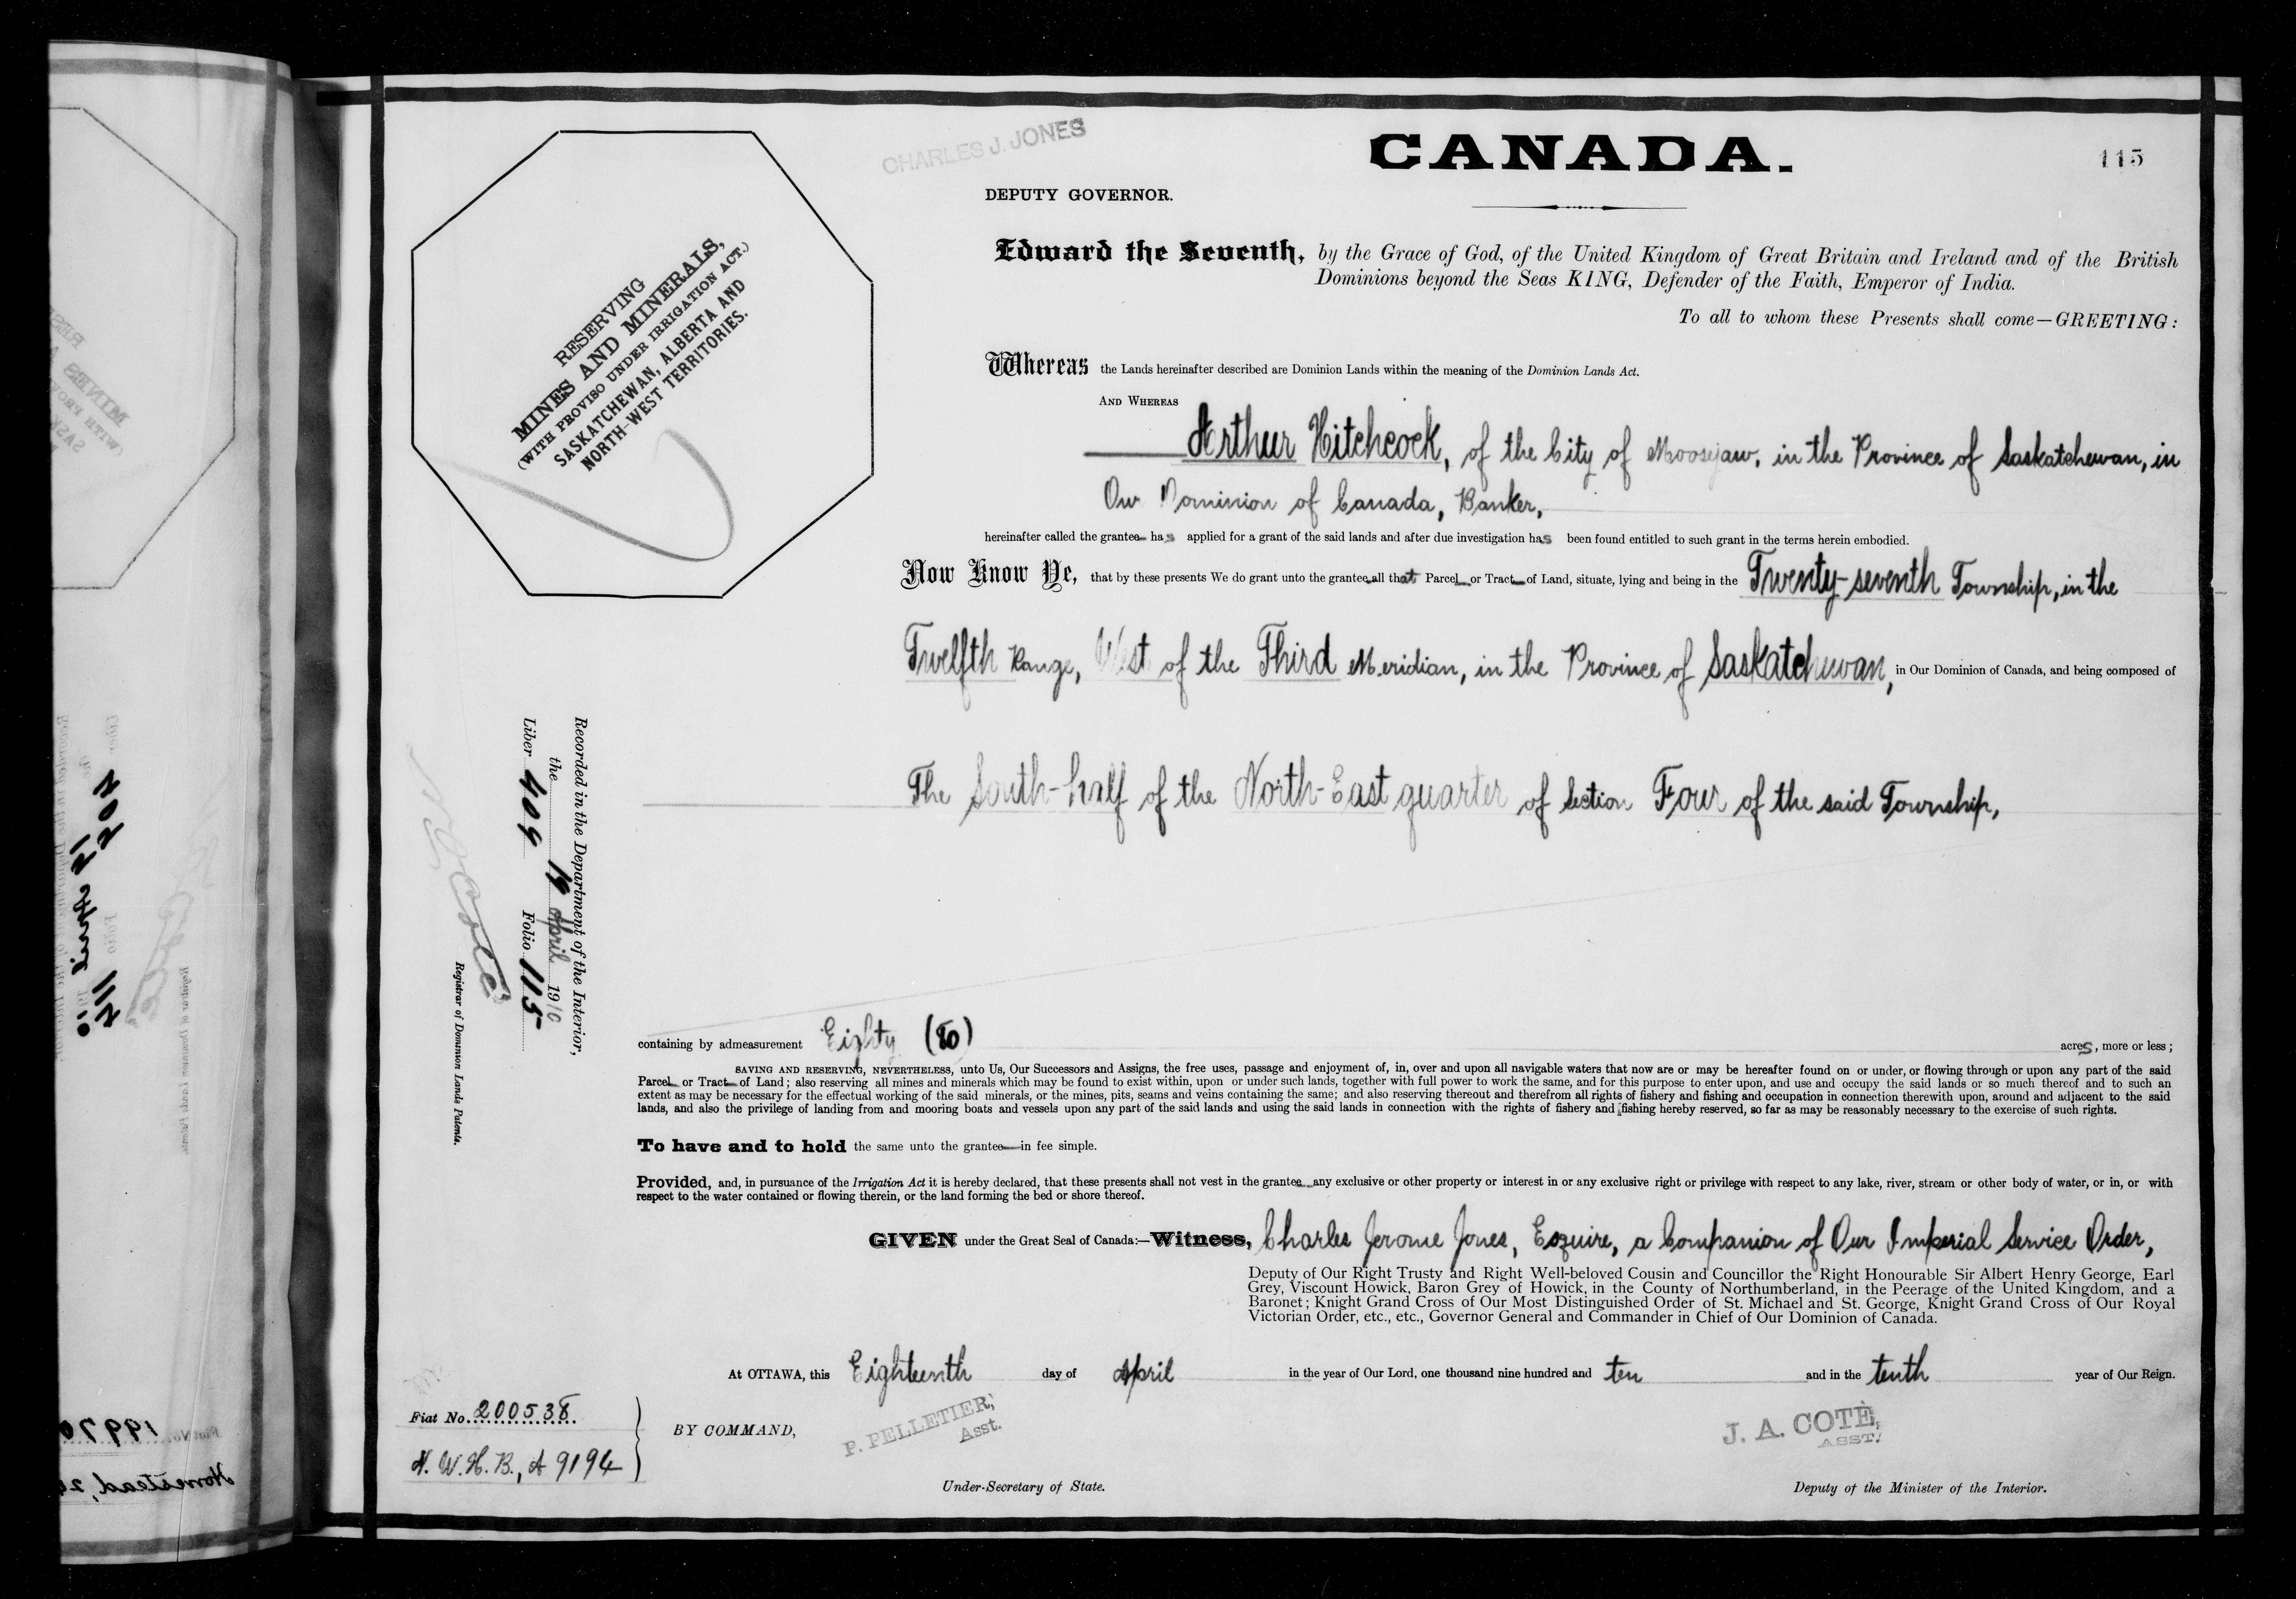 CHARLES J. JONES
CANADA.
115
DEPUTY GOVERNOR.
RESERVING
MINES AND MINERALS,
(WITH PROVISO UNDER IRRIGATION ACT.)
SASKATCHEWAN, ALBERTA AND
NORTH-WEST TERRITORIES.
Edward the Seventh, by the Grace of God, of the United Kingdom of Great Britain and Ireland and of the British
Dominions beyond the Seas KING, Defender of the Faith, Emperor of India.
To all to whom these Presents shall come—GREETING:
Whereas the Lands hereinafter described are Dominion Lands within the meaning of the Dominion Lands Act.
AND WHEREAS
Arthur Hitchcock, of the City of Moosejaw, in the Province of Saskatchewan, in
Our Dominion of Canada, Banker,
hereinafter called the grantee has applied for a grant of the said lands and after due investigation has been found entitled to such grant in the terms herein embodied.
Now Know Ye, that by these presents We do grant unto the grantee all that Parcel or Tract of Land, situate, lying and being in the Twenty-seventh Township, in the
Twelfth Range, West of the Third Meridian, in the Province of Saskatchewan, in Our Dominion of Canada, and being composed of
The South-half of the North-East quarter of Section Four of the said Township,
Recorded in the Department of the Interior,
the 19 April 1910
Liber 409 Folio 115
N O Coté
Registrar of Dominion Lands Patents.
containing by admeasurement Eighty (80) acres, more or less;
SAVING AND RESERVING, NEVERTHELESS, unto Us, Our Successors and Assigns, the free uses, passage and enjoyment of, in, over and upon all navigable waters that now are or may be hereafter found on or under, or flowing through or upon any part of the said
Parcel or Tract of Land; also reserving all mines and minerals which may be found to exist within, upon or under such lands, together with full power to work the same, and for this purpose to enter upon, and use and occupy the said lands or so much thereof and to such an
extent as may be necessary for the effectual working of the said minerals, or the mines, pits, seams and veins containing the same; and also reserving thereout and therefrom all rights of fishery and fishing and occupation in connection therewith upon, around and adjacent to the said
lands, and also the privilege of landing from and mooring boats and vessels upon any part of the said lands and using the said lands in connection with the rights of fishery and fishing hereby reserved, so far as may be reasonably necessary to the exercise of such rights.
To have and to hold the same unto the grantee in fee simple.
Provided, and, in pursuance of the Irrigation Act it is hereby declared, that these presents shall not vest in the grantee any exclusive or other property or interest in or any exclusive right or privilege with respect to any lake, river, stream or other body of water, or in, or with
respect to the water contained or flowing therein, or the land forming the bed or shore thereof.
GIVEN under the Great Seal of Canada:—Witness, Charles Jerome Jones, Esquire, a Companion of Our Imperial Service Order,
Deputy of Our Right Trusty and Right Well-beloved Cousin and Councillor the Right Honourable Sir Albert Henry George, Earl
Grey, Viscount Howick, Baron Grey of Howick, in the County of Northumberland, in the Peerage of the United Kingdom, and a
Baronet; Knight Grand Cross of Our Most Distinguished Order of St. Michael and St. George, Knight Grand Cross of Our Royal
Victorian Order, etc., etc., Governor General and Commander in Chief of Our Dominion of Canada.
At OTTAWA, this Eighteenth day of April in the year of Our Lord, one thousand nine hundred and ten and in the tenth year of Our Reign.
Fiat No. 200538
N. W. H. B., A 9194
BY COMMAND,
P. PELLETIER,
Asst.
Under-Secretary of State.
J. A. COTÉ,
ASST.
Deputy of the Minister of the Interior.